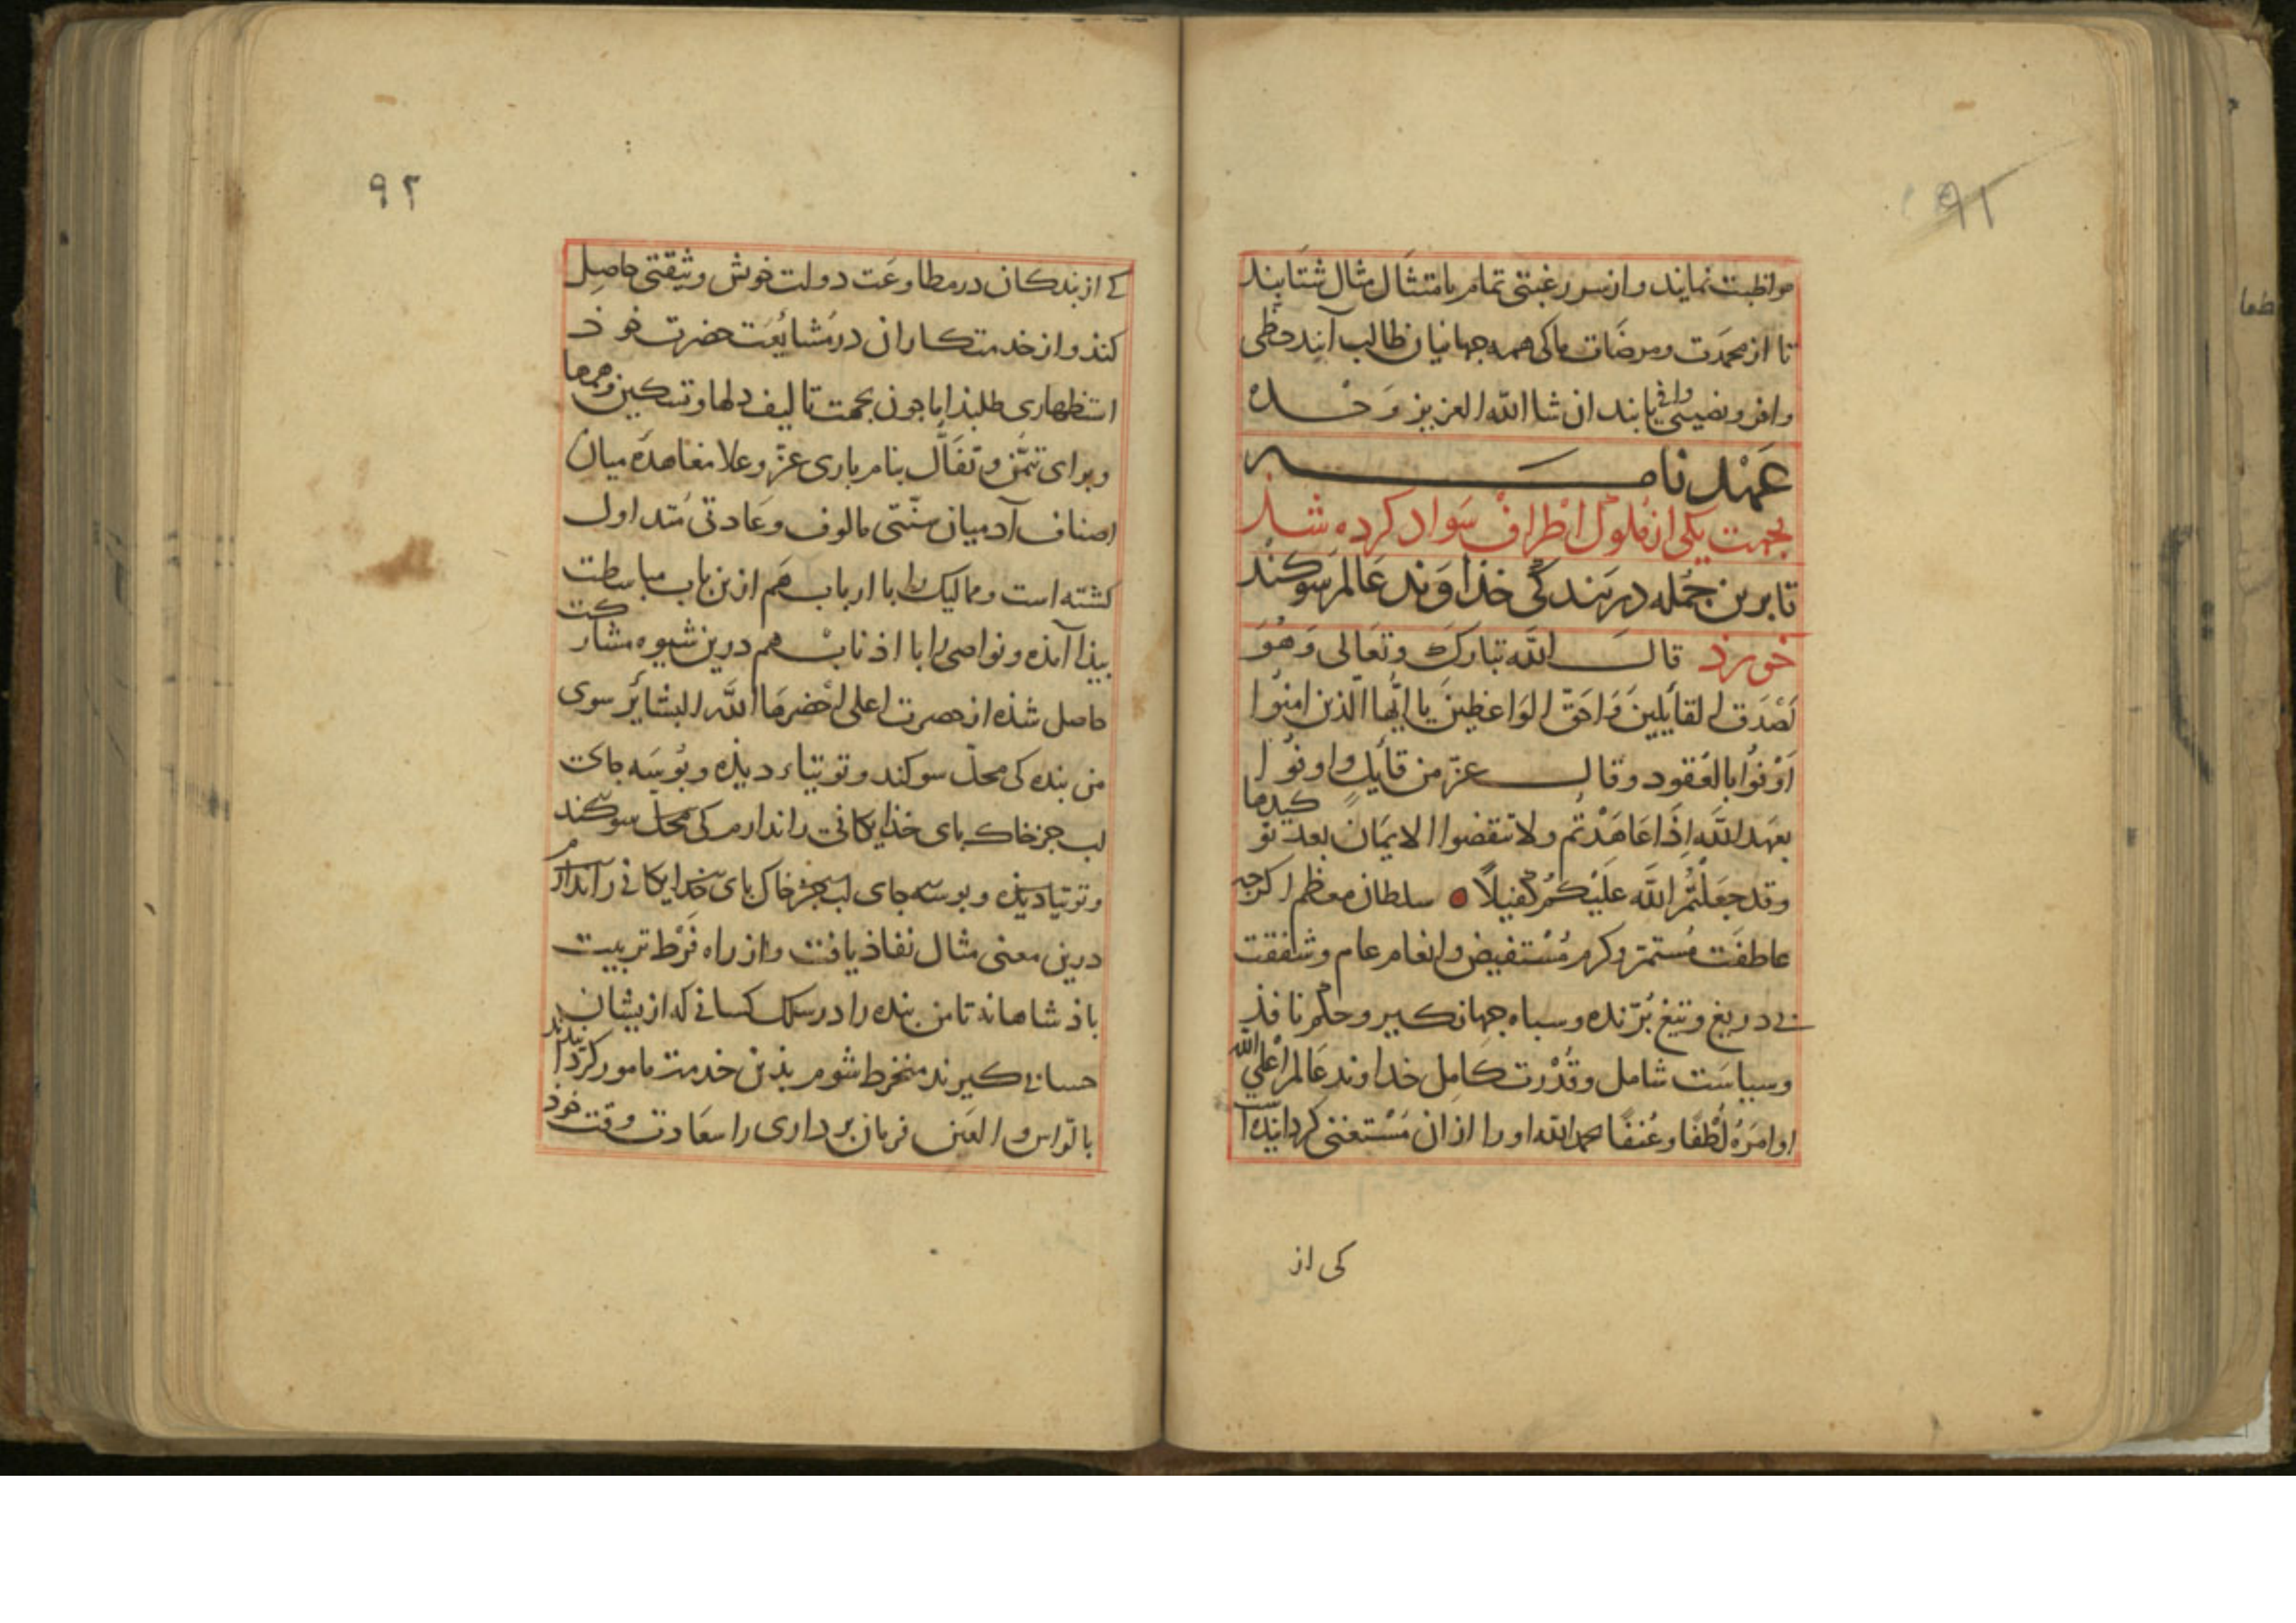 ۹۱
مواظبت نمایند و از سر رغبتی تمام بامتثال مثال شتابند
تا از محمدت و مرضات ما کی همه جهانیان طالب آنند حظی
وافر و نصیبی وافی یابند ان شا الله العزیز وحده
عهد نامه
بجهت یکی از ملوک اطراف سواد کرده شذ
تا برین جمله در بندگی خذاوند عالم سوکند
خورذ قال الله تبارک وتعالی وهو
اصدق القایلین واحق الواعظین یا ایها الذین امنوا
اوفوا بالعقود وقال عز من قایل واوفوا
بعهد الله اذا عاهدتم ولا تنقضوا الایمان بعد توکیدها
وقد جعلتم الله علیکم کفیلا سلطان معظم اکرچه
عاطفت مستمر و کرم مستفیض و انعام عام و شفقت
بی دریغ و تیغ برنده و سباه جهانکیر و حکم نافذ
و سیاست شامل و قدرت کامل خداوند عالم اعلی الله
اوامره لطفا و عنفا بحمدالله او را از ان مستغنی کردانیده است
کی از
۹۲
کی از بندکان در مطاوعت دولت خوش وثیقتی حاصل
کنذ و از خدمتکاران در مشایعت حضرت خوذ
استظهاری طلبذ اما جون بجهت تالیف دلها و تسکین
و برای تیمن و تفأل بنام باری عز و علا معاهده میان
اصناف آدمیان سنتی مالوف و عادتی متداول
کشته است و ممالیک را با ارباب هم ازین باب مباسطت
بیذا آمذه و نواصی را با اذناب هم درین شیوه مشارکت
حاصل شذه از حضرت اعلی احضرها الله البشایر سوی
من بنده کی محل سوکند و توتیاء دیذه و بوسه جای
لب جز خاک بای خذایکانی را ندارم کی محل سوکند
و توتیا دیذه و بوسه جای لب بجز خاک بای خدایکانی را ندارم
درین معنی مثال نفاذ یافت و از راه فرط تربیت
باذشاهانه تا من بنده را در سلک کسانی که از یشان
حسابی کیرند منخرط شوم بذین خدمت مامور کردانیدند
بالراس و العین فرمان برداری را سعادت وقت خوذ